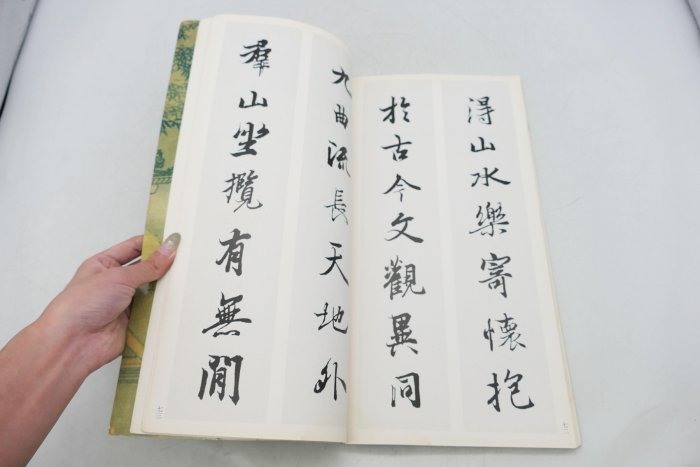 得山水樂寄懷抱
於古今文觀異同
九曲流長天地外
羣山坐攬有無間